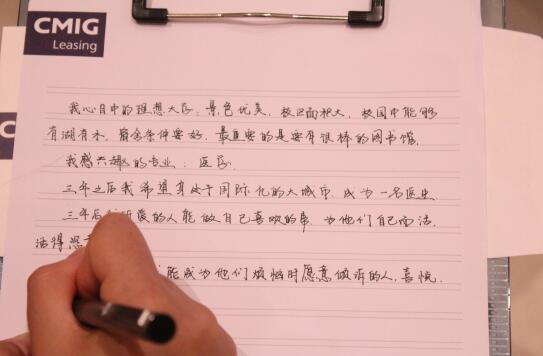 CMIG
Leasing
我心目中的理想大学：景色优美，校区面积大，校园中能够
有湖有木，宿舍条件要好，最重要的是要有很棒的图书馆。
我感兴趣的专业：医学
三年之后我希望身处于国际化的大城市，成为一名医生
三年后我所爱的人能做自己喜欢的事，为他们自己而活，
活得
能成为他们烦恼时愿意倾诉的人，喜悦